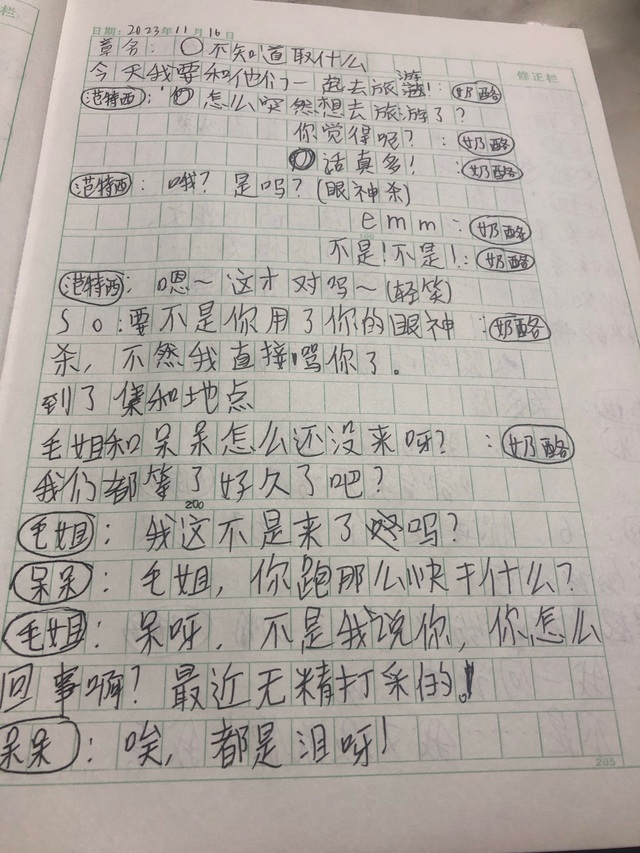 日期: 2023年11月16日
修正栏
章名: 不知道取什么
今天我要和他们一起去旅游!: 奶酪
范特西: 怎么突然想去旅游了?
你觉得呢? : 奶酪
话真多! : 奶酪
范特西: 哦? 是吗? (眼神杀)
emm : 奶酪
不是!不是!: 奶酪
范特西: 嗯~这才对吗~(轻笑)
So:要不是你用了你的眼神 : 奶酪
杀, 不然我直接骂你了。
到了集和地点
毛姐和呆呆怎么还没来呀? : 奶酪
我们都等了好久了吧?
200
毛姐: 我这不是来了吗?
呆呆: 毛姐, 你跑那么快干什么?
毛姐: 呆呀, 不是我说你, 你怎么
回事啊? 最近无精打采的!
呆呆: 唉, 都是泪呀!
205